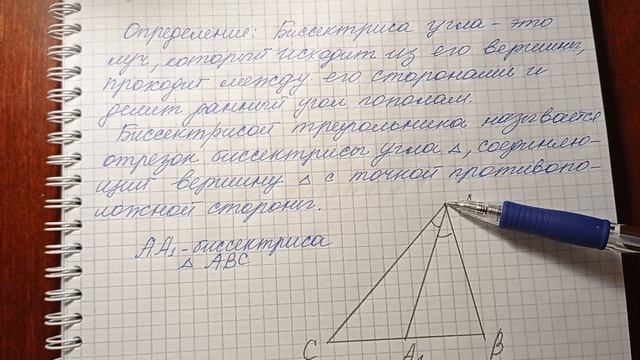 Определение: Биссектриса угла - это
луч, который исходит из его вершины,
проходит между его сторонами и
делит данный угол пополам.
Биссектрисой треугольника называется
отрезок биссектрисы угла △, соединяю-
щий вершину △ с точкой противопо-
ложной стороны.
AA₁ - биссектриса
△ ABC
C A₁ B